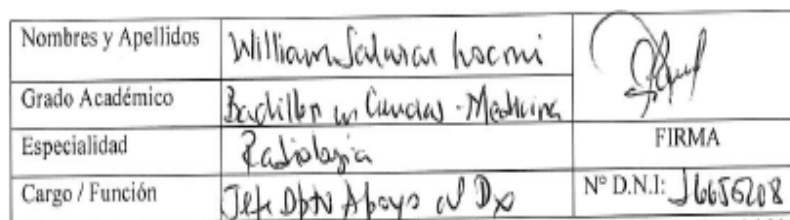 Nombres y Apellidos William Salazar
Grado Académico Bachiller en Ciencias - Medicina
Especialidad Radiología FIRMA
Cargo / Función Jefe Dpto Apoyo al Dx N° D.N.I: